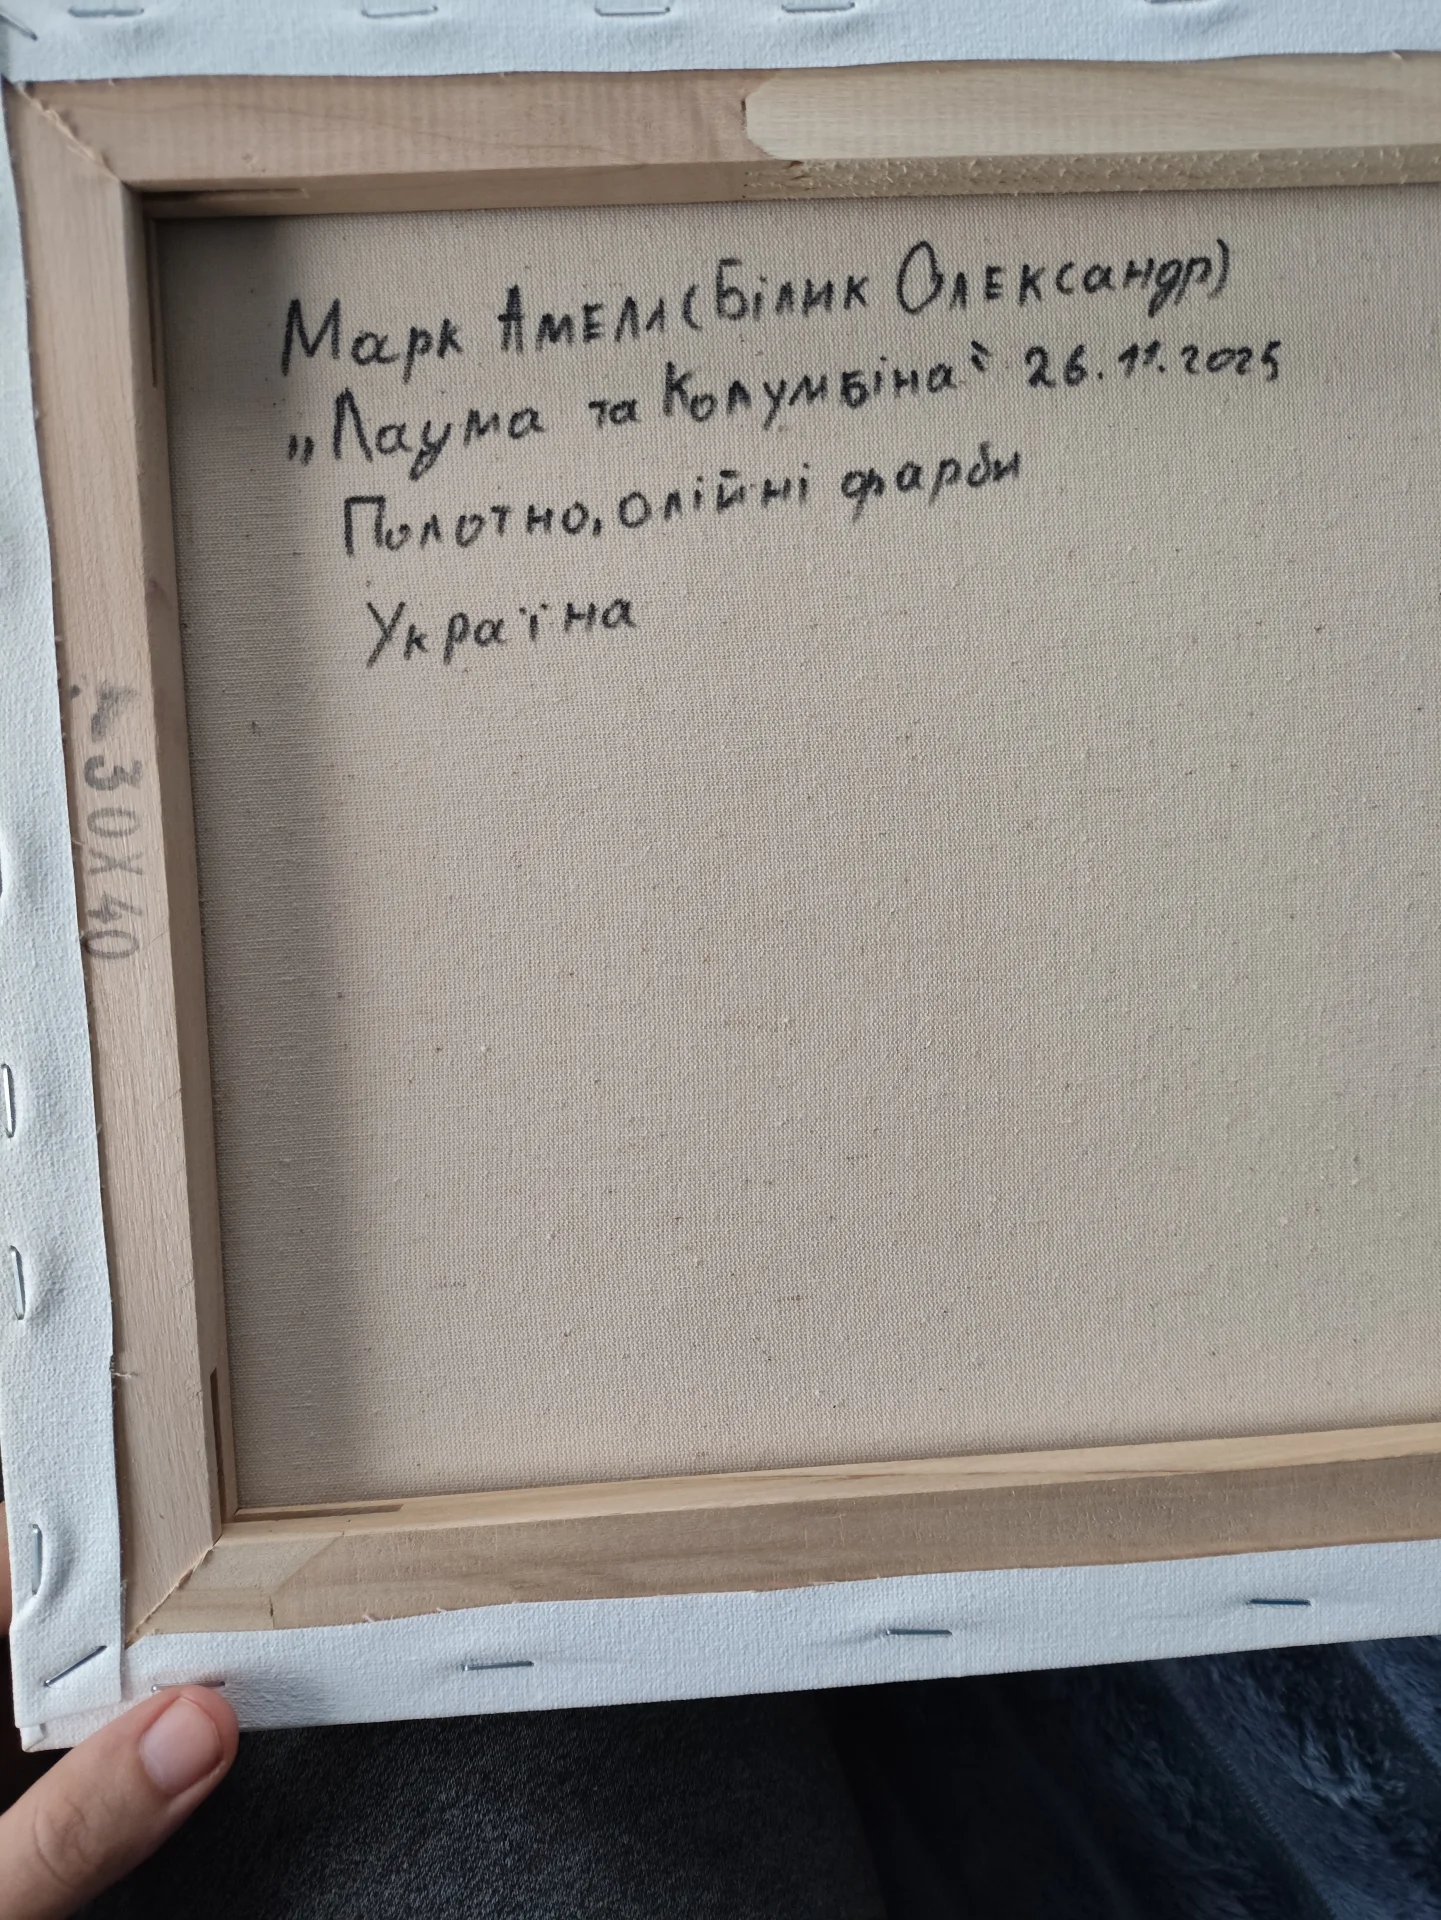 Марк Амелл (Білик Олександр)
„Лаума та Колумбіна“ 26.11.2025
Полотно, олійні фарби
Україна
30X40